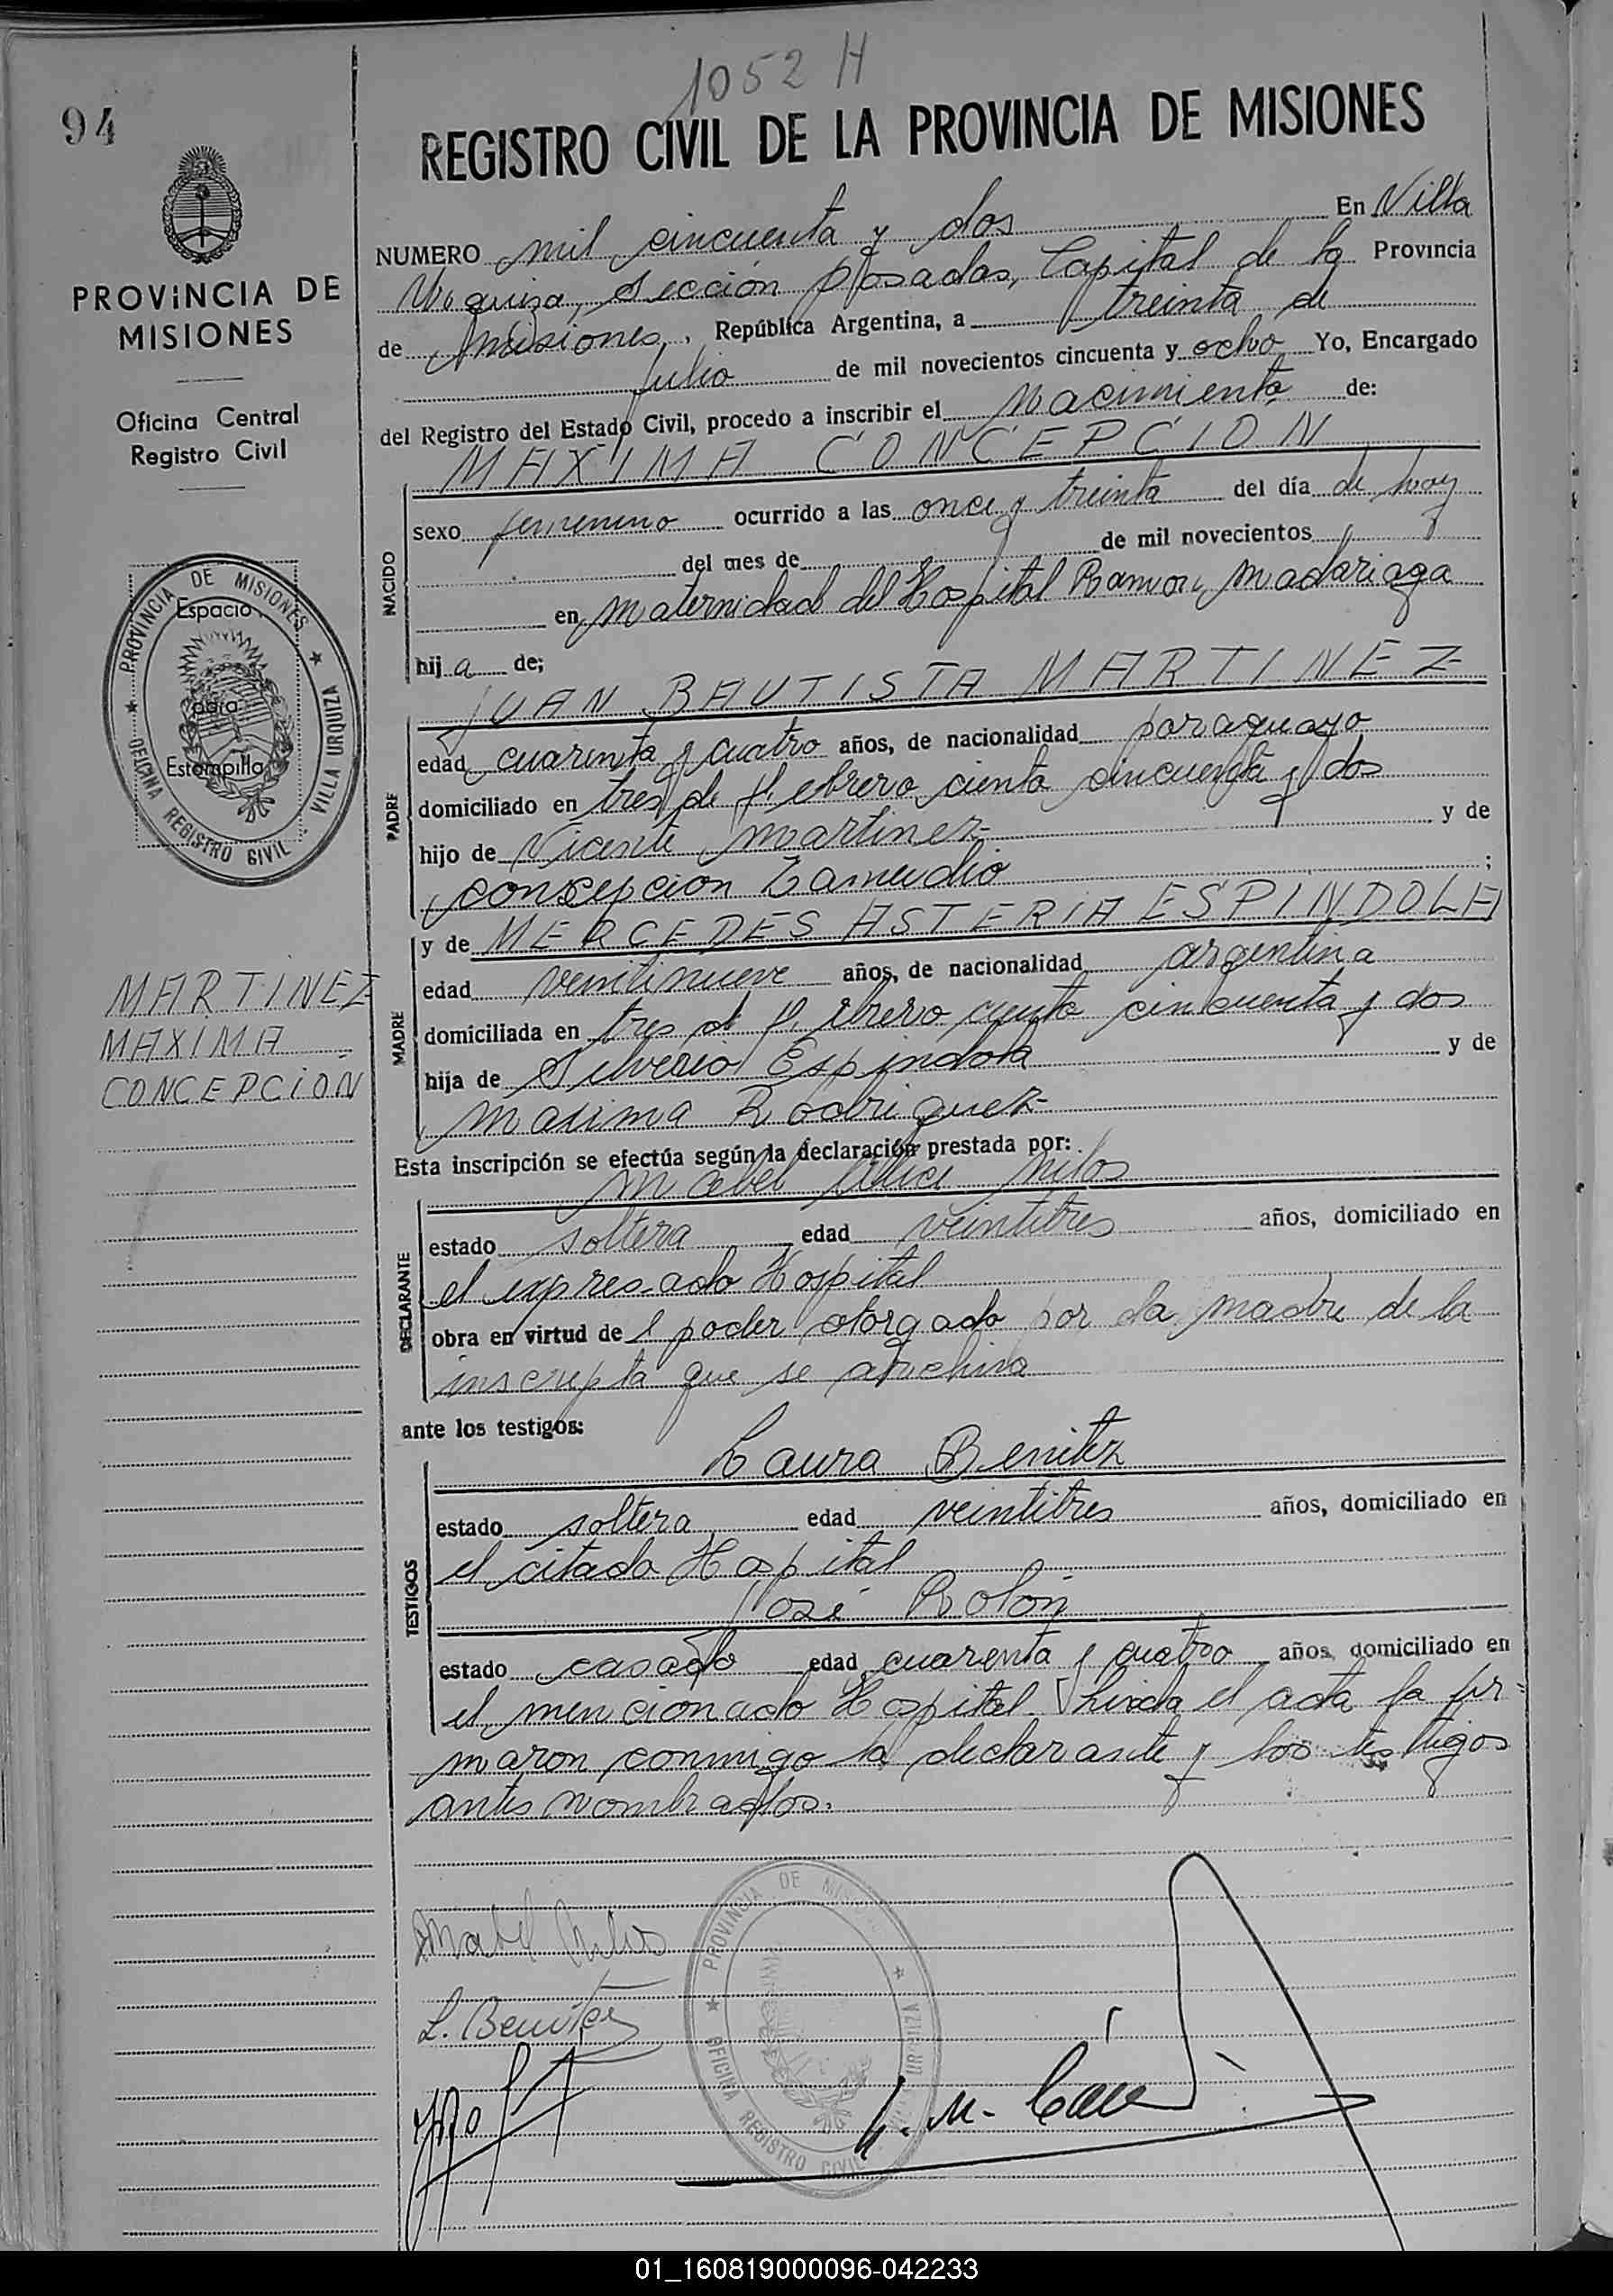 1052 H
94
REGISTRO CIVIL DE LA PROVINCIA DE MISIONES
PROVINCIA DE
MISIONES
Oficina Central
Registro Civil
PROVINCIA DE MISIONES
OFICINA REGISTRO CIVIL - VILLA URQUIZA
Espacio
para
Estampilla
MARTINEZ
MAXIMA
CONCEPCIÓN
NUMERO mil cincuenta y dos En Villa
Urquiza, Sección Posadas, Capital de la Provincia
de Misiones, República Argentina, a treinta de
Julio de mil novecientos cincuenta y ocho Yo, Encargado
del Registro del Estado Civil, procedo a inscribir el Nacimiento de:
MAXIMA CONCEPCION
NACIDO
sexo femenino ocurrido a las once y treinta del día de hoy
del mes de de mil novecientos
en Maternidad del Hospital Ramon Madariaga
hij a de;
JUAN BAUTISTA MARTINEZ
PADRE
edad cuarenta y cuatro años, de nacionalidad paraguayo
domiciliado en tres de febrero ciento cincuenta y dos
hijo de Vicente Martinez y de
Concepcion Zamudio ;
MADRE
y de MERCEDES ASTERIA ESPINDOLA
edad veintinueve años, de nacionalidad argentina
domiciliada en tres de febrero ciento cincuenta y dos
hija de Silverio Espindola y de
Maxima Rodriguez
Esta inscripción se efectúa según la declaración prestada por:
Mabel Milos
DECLARANTE
estado soltera edad veintitres años, domiciliado en
el expresado Hospital
obra en virtud de l poder otorgado por la madre de la
inscripta que se archiva
ante los testigos:
Laura Benitez
TESTIGOS
estado soltera edad veintitres años, domiciliado en
el citado Hospital
José Rolón
estado casado edad cuarenta y cuatro años, domiciliado en
el mencionado Hospital. Leida el acta la fir=
maron conmigo la declarante y los testigos
antes nombrados.
Mabel Milos
L. Benitez
PROVINCIA DE MISIONES
OFICINA REGISTRO CIVIL URQUIZA
01_160819000096-042233